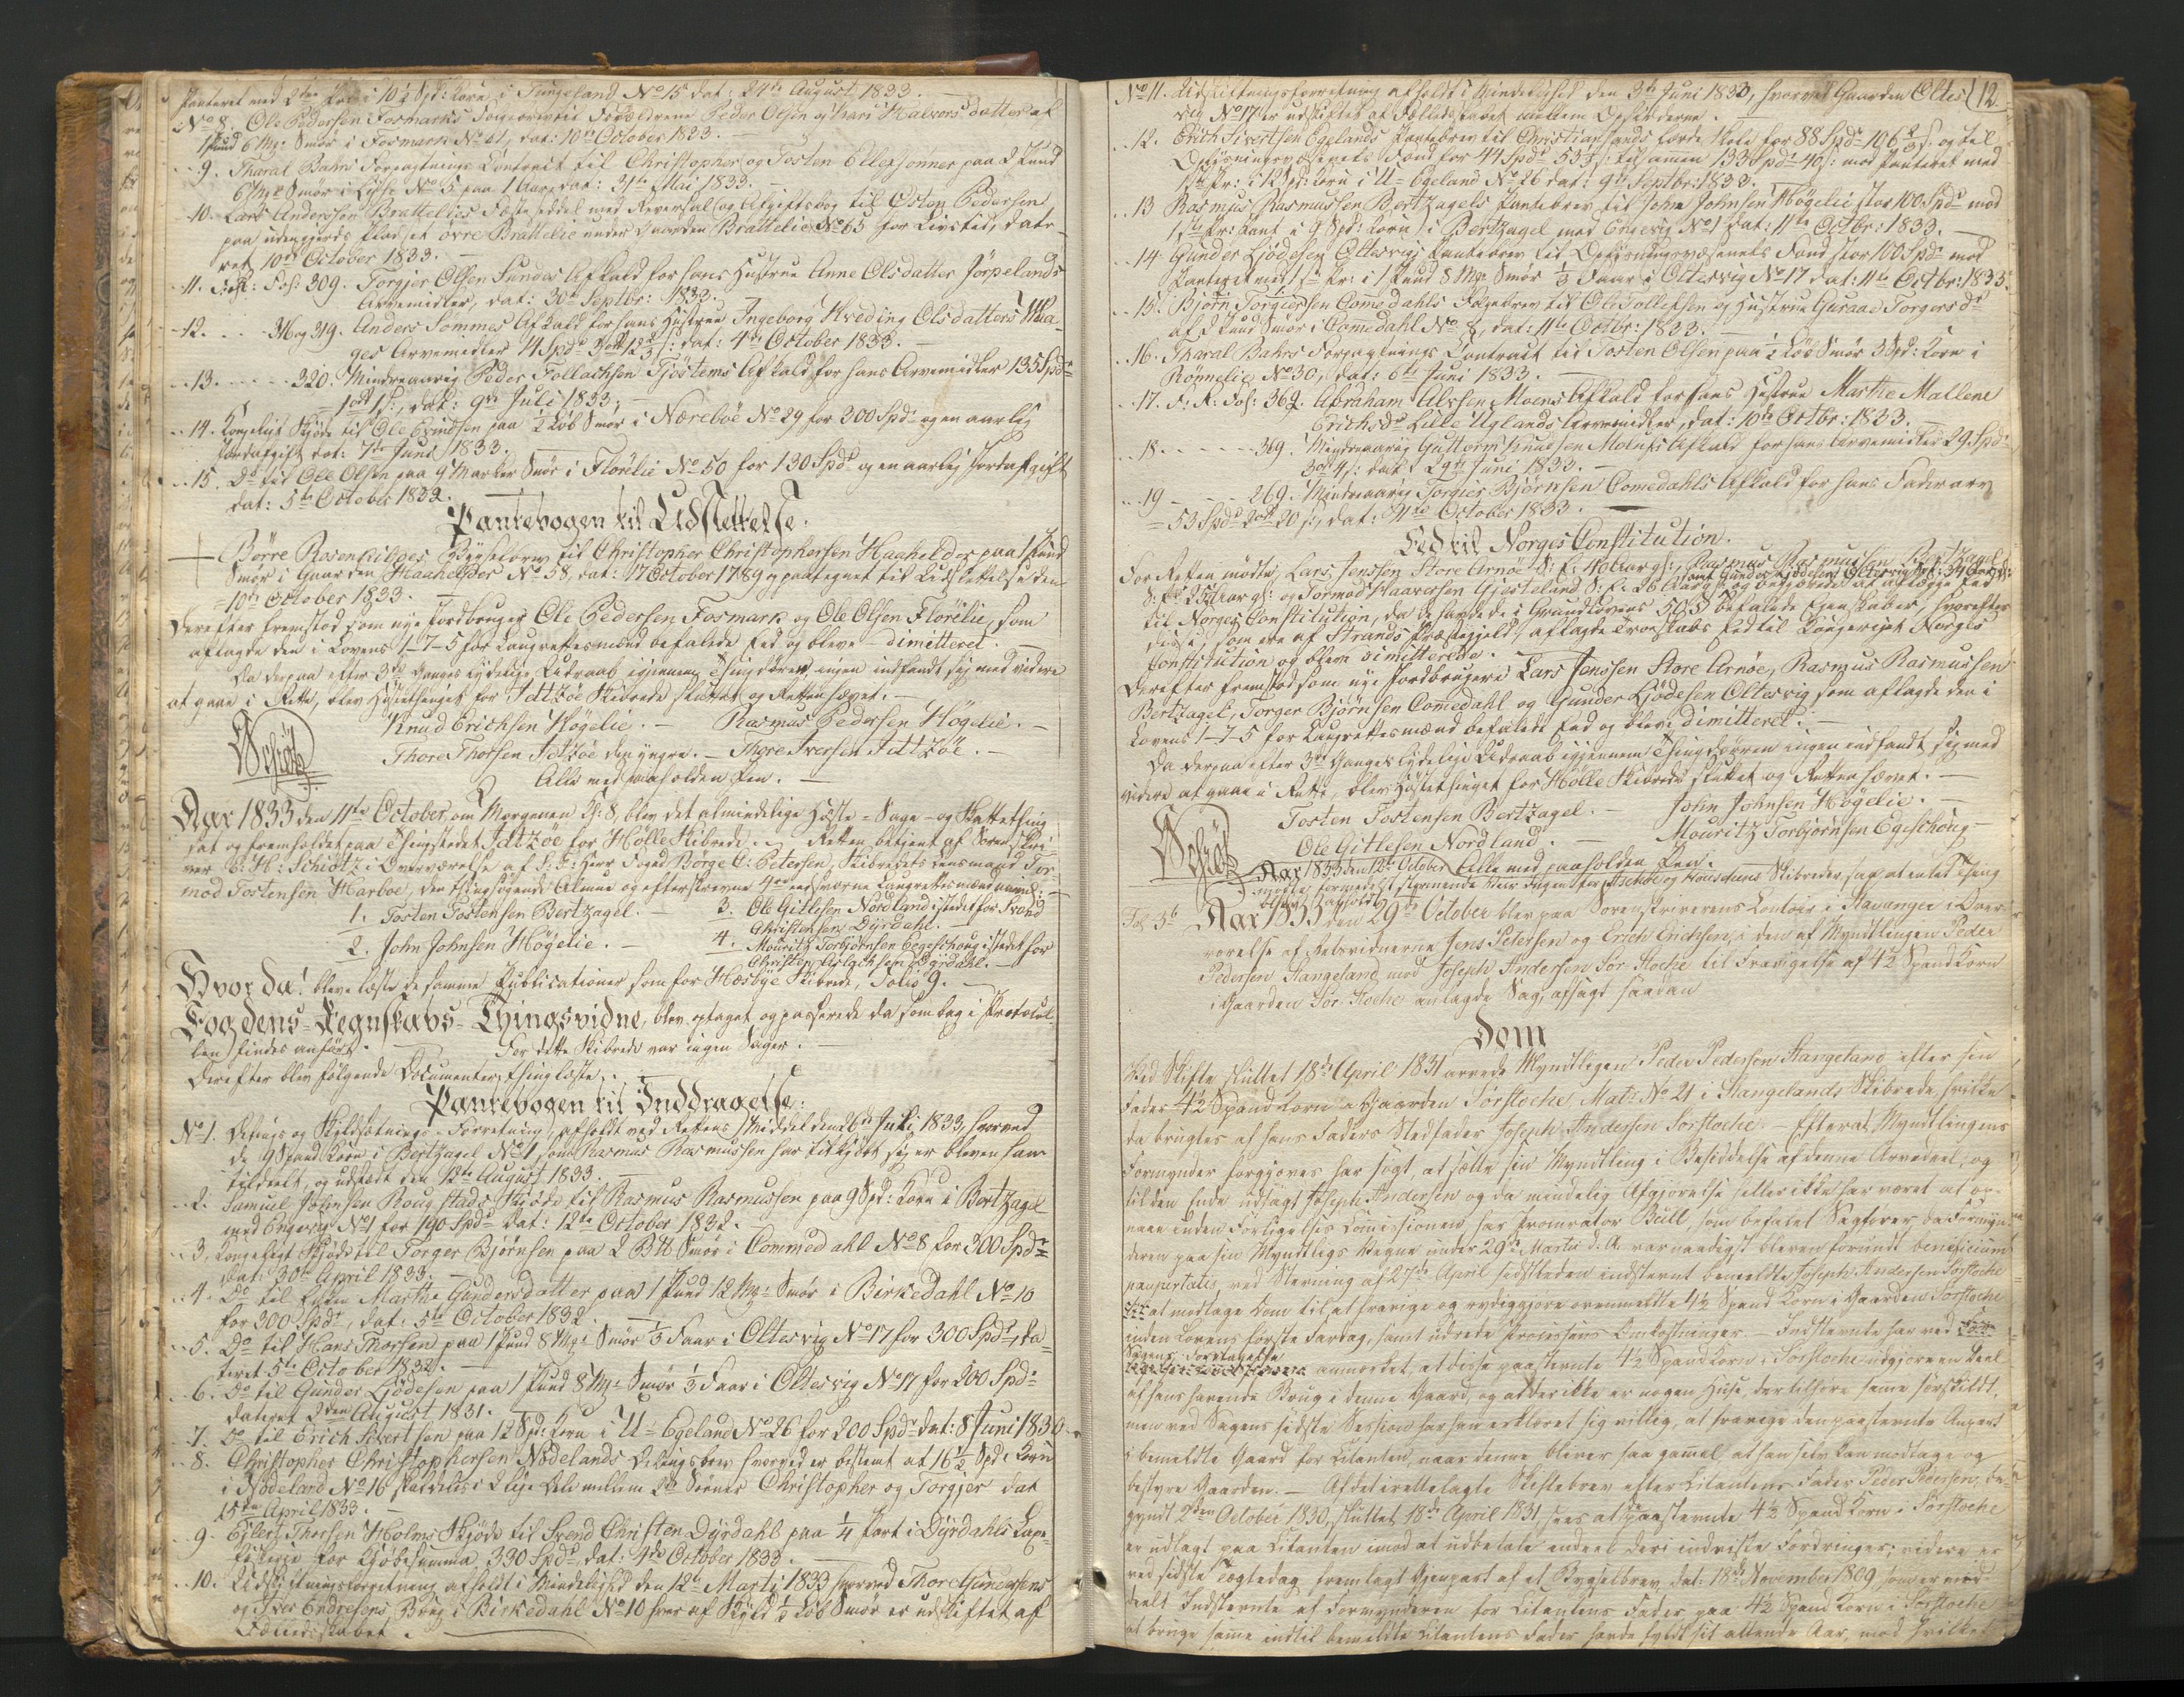 Panteret med 2den Pr: i 10½ Spd: Korn i Tungeland No 15 dat: 24de August 1833.
No 8. Ole Pedersen Fosmarks Føderaadsbrev til Forældrene Peder Olsen og Kari Halvorsdatter af
1 Pund 6 Mrk: Smør i Fosmark No 41, dat: 10de October 1833.
9. Tharal Bahrs Forpagtnings Contract til Christopher og Tosten Ellefsønner paa 2 Pund
6 Mrk Smør i Lyse No 5 paa 1 Aar, dat: 31te Mai 1833.
10. Lars Andersen Brattelies Fæsteseddel med Reversal og Afgiftsbog til Østen Pedersen
paa udengjerds Pladset øvre Brattelie under Gaarden Brattelie No 65 for Livstid, date-
ret 10de October 1833.
11. Fol: 309. Torgier Olsen Sundes Afkald for hans Hustrue Anne Olsdatter Jørpelands
Arvemidler, dat: 30te Septbr: 1833.
12. 316 og 319. Anders Sømmes Afkald for hans Hustrue Ingeborg Kveding Olsdatters Wa-
ges Arvemidler 14 Spdr 3 ort 12 s: dat: 4de October 1833.
13. 320. Mindreaarig Peder Tollachsen Tjøstems Afkald for hans Arvemidler 135 Spdr
1 ort 1 s:, dat: 9de Juli 1833.
14. Kongeligt Skjøde til Ole Evindsen paa ½ Løb Smør i Nærebøe No 29 for 200 Spdr og en aarlig
Jordafgift dat: 7de Juni 1833.
15. Do til Ole Olsen paa 9 Marker Smør i Florilie No 50 for 130 Spdr og en aarlig Jordafgift
dat: 5te October 1832.
Pantebogen til Udslettelse.
Børre Rosenkildes Byxelbrev til Christopher Christophersen Haahelder paa 1 Pund
Smør i Gaarden Haahelder No 58, dat: 17 October 1789 og paategnet til Udslettelse den
10de October 1833.
Derefter fremstod som nye Jordbruger Ole Pedersen Fosmark og Ole Olsen Florilie, som
aflagde den i Lovens 1-7-5 for Laugrettesmænd befalede Eed og bleve dimitteret.
Da derpaa efter 3de Ganges lydelige Udraab igjennem Thingdøren ingen indfandt sig med videre
at gaae i Rette, blev Høstethinget for Jdtzøe Skibrede sluttet og Retten hævet.
Knud Erichsen Høgelie. Rasmus Pedersen Høgelie.
Schiøtz
Thore Thorsen Idtzøe den yngre. Thore Iversen Idtzøe.
Alle med paaholden Pen.
Aar 1833 den 11te October, om Morgenen Kl: 8, blev det almindelige Høste-Sage- og Skattething
sat og fremholdet paa Thingstedet Idtzøe for Hølle Skibrede. Retten betjent af Sorenskri-
ver C: H: Schiøtz i Overværelse af S: T: Herr Foged Børge C: Petersen, Skibredets Lensmand Tor-
mod Tostensen Harboe, den Thingsøgende Almue og efterskrevne 4re eedsvorne Laugrettesmænd navnl:
1. Tosten Tostensen Bertzagel. 3. Ole Gitlesen Nordland istedet for Svend
Christensen Dyrdahl.
2. John Johnsen Høgelie. 4. Mouritz Torbjørnsen Egeschoug istedet for
Christen Aslachsen Dyrdahl.
Hvor da! bleve læste de samme Publicationer som for Hesbye Skibrede, Folio 9.
Fogdens-Regnskabs-Thingsvidne, blev optaget og passerede da som bag i Protocol-
len findes anført. For dette Skibrede var ingen Sager.
Derefter blev følgende Documenter thinglæste.
Pantebogen til Inddragelse:
No 1. Delings og Skyldsætnings-Forretning, afholdt ved Rettens Middel den 26de Juli 1833, hvorved
de 9 Spand Korn i Bertzagel No 1, som Rasmus Rasmussen har tilkjøbt sig er bleven ham
tildeelt, og udstædt den 12te August 1833.
2. Samuel Johnsen Rougstads Skjøde til Rasmus Rasmussen paa 9 Spd: Korn i Bertzagel
med Engevig No 1 for 190 Spdr dat: 12te October 1832.
3. Kongeligt Skjøde til Torger Bjørnsen paa 2 Smør i Commedahl No 8 for 300 Spdr
dat: 30te April 1833.
4. Do til Enken Marthe Gundersdatter paa 1 Pund 12 Mrk: Smør i Birkedahl No 10
for 300 Spdr, dat: 5te October 1832.
5. Do til Hans Thorsen paa 1 Pund 8 Mrk: Smør ⅓ Faar i Oltesvig No 17 for 300 Spdr, da-
teret 5te October 1832.
6. Do til Gunder Ljødesen paa 1 Pund 8 Mrk: Smør ⅓ Faar i Oltesvig No 17 for 200 Spdr
dateret 2den August 1831.
7. Do til Erich Sivertsen paa 12 Spd: Korn i U-Egeland No 26 for 200 Spdr dat: 8 Juni 1830
8. Christopher Christophersen Nødelands Delingsbrev hvorved er bestemt at 16½ Spd: Korn
i Nødeland No 16 skal deles i 2 lige Dele mellem Sønner Christopher og Torgier dat
15de April 1833.
9. Eilert Thorsen Holms Skjøde til Svend Christen Dyrdahl paa ¼ Part i Dyrdahls Laxe-
fiskerie for Kjøbesumma 330 Spdr, dat: 4de October 1833.
10. Udskiftningsforretning afholdt i Mindelighed den 12te Martz 1833 hvorved Thore Gundersens
og Iver Endresens Brug i Birkedahl No 10 hver af Skyld ½ Løb Smør er udskiftet af
Fælledsskabet.
12.
No 11. Udskiftningsforretning afholdt i Mindelighed den 3de Juni 1833, hvorved Gaarden Oltes-
vig No 17 er udskiftet af Fælledsskabet mellem Opsidderne.
12. Erich Sivertsen Egelands Pantebrev til Christiansands lærde Skole for 88 Spdr 106⅔ s: og til
Oplysningsvæsenets Fond for 44 Spdr 53⅓ s: tilsamen 133 Spdr 40 s: mod Panteret med
1ste Pr: i 12 Spd: Korn i U-Egeland No 26 dat: 9de Septbr: 1833.
13 Rasmus Rasmussen Bertzagels Pantebrev til John Johnsen Høgelie stor 100 Spdr mod
1ste Pr: Pant i 9 Spd: Korn i Bertzagel med Engevig No 1 dat: 11te Octbr: 1833.
14. Gunder Ljødesen Oltesvigs Pantebrev til Oplysningsvæsenets Fond stor 100 Spdr mod
Panteret med 1ste Pr: i 1 Pund 8 Mrk Smør ⅓ Faar i Oltesvig No 17 dat: 11te Octbr: 1833.
15. Bjørn Torgiersen Comedahls Følgebrev til Ole Tollefsen og Hustrue Guraae Torgersdr
af 2 Pund Smør i Comedahl No 8, dat: 11te Octbr: 1833.
16. Tharal Bahrs Forpagtnings Contract til Tosten Olsen paa ½ Løb Smør 3 Spd: Korn i
Rønnelie No 30, dat: 6te Juni 1833.
17. F. R. Fol: 362. Abraham Alxsen Moens Afkald for hans Hustrue Marthe Mallene
Erichsdr Lille Uglands Arvemidler, dat: 10de Octbr: 1833.
18. 369. Mindreaarig Guttorm Knudsen Molaufs Afkald for hans Arvemidler 29 Spdr
3 ort 4 s: dat: 29de Juni 1833.
19 269. Mindreaarig Torgier Bjørnsen Comedahls Afkald for hans Faderarv
53 Spdr 2 ort 20 s:, dat: 11te October 1833.
Eed til Norges Constitution.
For Retten mødte, Lars Jenssen Store Arnøe S: f: 40 Aar gl:, Rasmus Rasmussen Bertzagel
samt Gunder Ljødesen Oltesvig S: f: 34 Aar gl:
S: f: 25 Aar gl: og Tormod Haaversen Gjerteland S: f: 26 Aar gl: og begjerede at aflægge Eed
til Norges Constitution, da de havde de i Grundlovens 50 § befalede Egenskaber, hvorefter
disse, som ere af Strands Præstegjeld, aflagde Troskabs Eed til Kongeriget Norges
Constitution og bleve dimitterede.
Derefter fremstod som nye Jordbrugere Lars Jenssen Store Arnøe, Rasmus Rasmussen
Bertzagel, Torger Bjørnsen Comedahl og Gunder Ljødesen Oltesvig som aflagde den i
Lovens 1-7-5 for Laugrettesmænd befalede Eed og bleve dimitteret.
Da derpaa efter 3de Ganges lydelige Udraab igjennem Thingdøren ingen indfandt sig med
videre at gaae i Rette, blev Høstethinget for Hølle Skibrede sluttet og Retten hævet.
Tosten Tostensen Bertzagel. John Johnsen Høgelie.
Schiøtz
Ole Gitlesen Nordland. Mouritz Torbjørnsen Egeschoug
Alle med paaholden Pen.
Aar 1833 den 12te October
mødte formedelst stormende Veir Ingen for Aschøe og Houschens Skibreder, saa at intet Thing
blev afholdt
Fol 36 Aar 1833 den 29de October blev paa Sorenskriverens Contoir i Stavanger i Over-
værelse af Retsvidnerne Jens Petersen og Erich Erichsen, i den af Myndtlingen Peder
Pedersen Stangeland mod Joseph Andersen Sør Stoche til Fravigelse af 4½ Spand Korn
i Gaarden Sør-Stoche anlagde Sag, afsagt saadan
Dom
Ved Skifte sluttet 18de April 1831 arvede Myndtlingen Peder Pedersen Stangeland efter sin
Fader 4½ Spand Korn i Gaarden Sørstoche Matr: No 21 i Stangelands Skibrede, hvilke
da brugtes af hans Faders Stedfader Joseph Andersen Sørstoche. Efterat Myndtlingens
Formynder forgjæves har søgt, at sætte sin Myndtling i Besiddelse af denne Arvedeel, og
til den Ende udsagt Joseph Andersen og da mindelig Afgjørelse heller ikke har været at op-
naae inden Forligelses Comissionen, har Procurator Bull, som befalet Sagfører, da Formyn-
deren paa sin Myndtlings Vegne under 29de Martz d: A: var naadigst bleven forundt beneficium
paupertatis, ved Stevning af 27de April sidstleden indstevnt bemeldte Joseph Andersen Sørstoche
til at modtage Dom til at fravige og rydiggjøre ovenmeldte 4½ Spand Korn i Gaarden Sørstoche
inden Lovens første Fardag, samt udrede Processens Omkostninger. Indstevnte har ved
Sagens Foretagelse
anmærket, at disse paastevnte 4½ Spand Korn i Sørstoche udgjøre en Deel
af hans havende Brug i denne Gaard, og at der ikke er nogen Huse, der tilhøre same særskildt,
men ved Sagens sidste Session har han erklæret sig villig, at fravige den paastevnte Anpart
i bemeldte Gaard for Citanten, naar denne bliver saa gamel at han selv kan modtage og
bestyre Gaarden. Af det irettelagte Skiftebrev efter Citantens Fader Peder Pedersen, be-
gyndt 2den October 1830, sluttet 18de April 1831, sees at paastevnte 4½ Spand Korn i Sørstoche
er udlagt paa Citanten imod at udbetale endeel deri indviste Fordringer; videre er
ved sidste Tægtedag fremlagt Gjenpart af et Bygselbrev, dat: 18de November 1809 som er med-
deelt Indstevnte af Formynderen for Citantens Fader paa 4½ Spand Korn i Sørstoche
at bruge same indtil bemeldte Citantens Fader havde fyldt sit attende Aar, mod hvilket